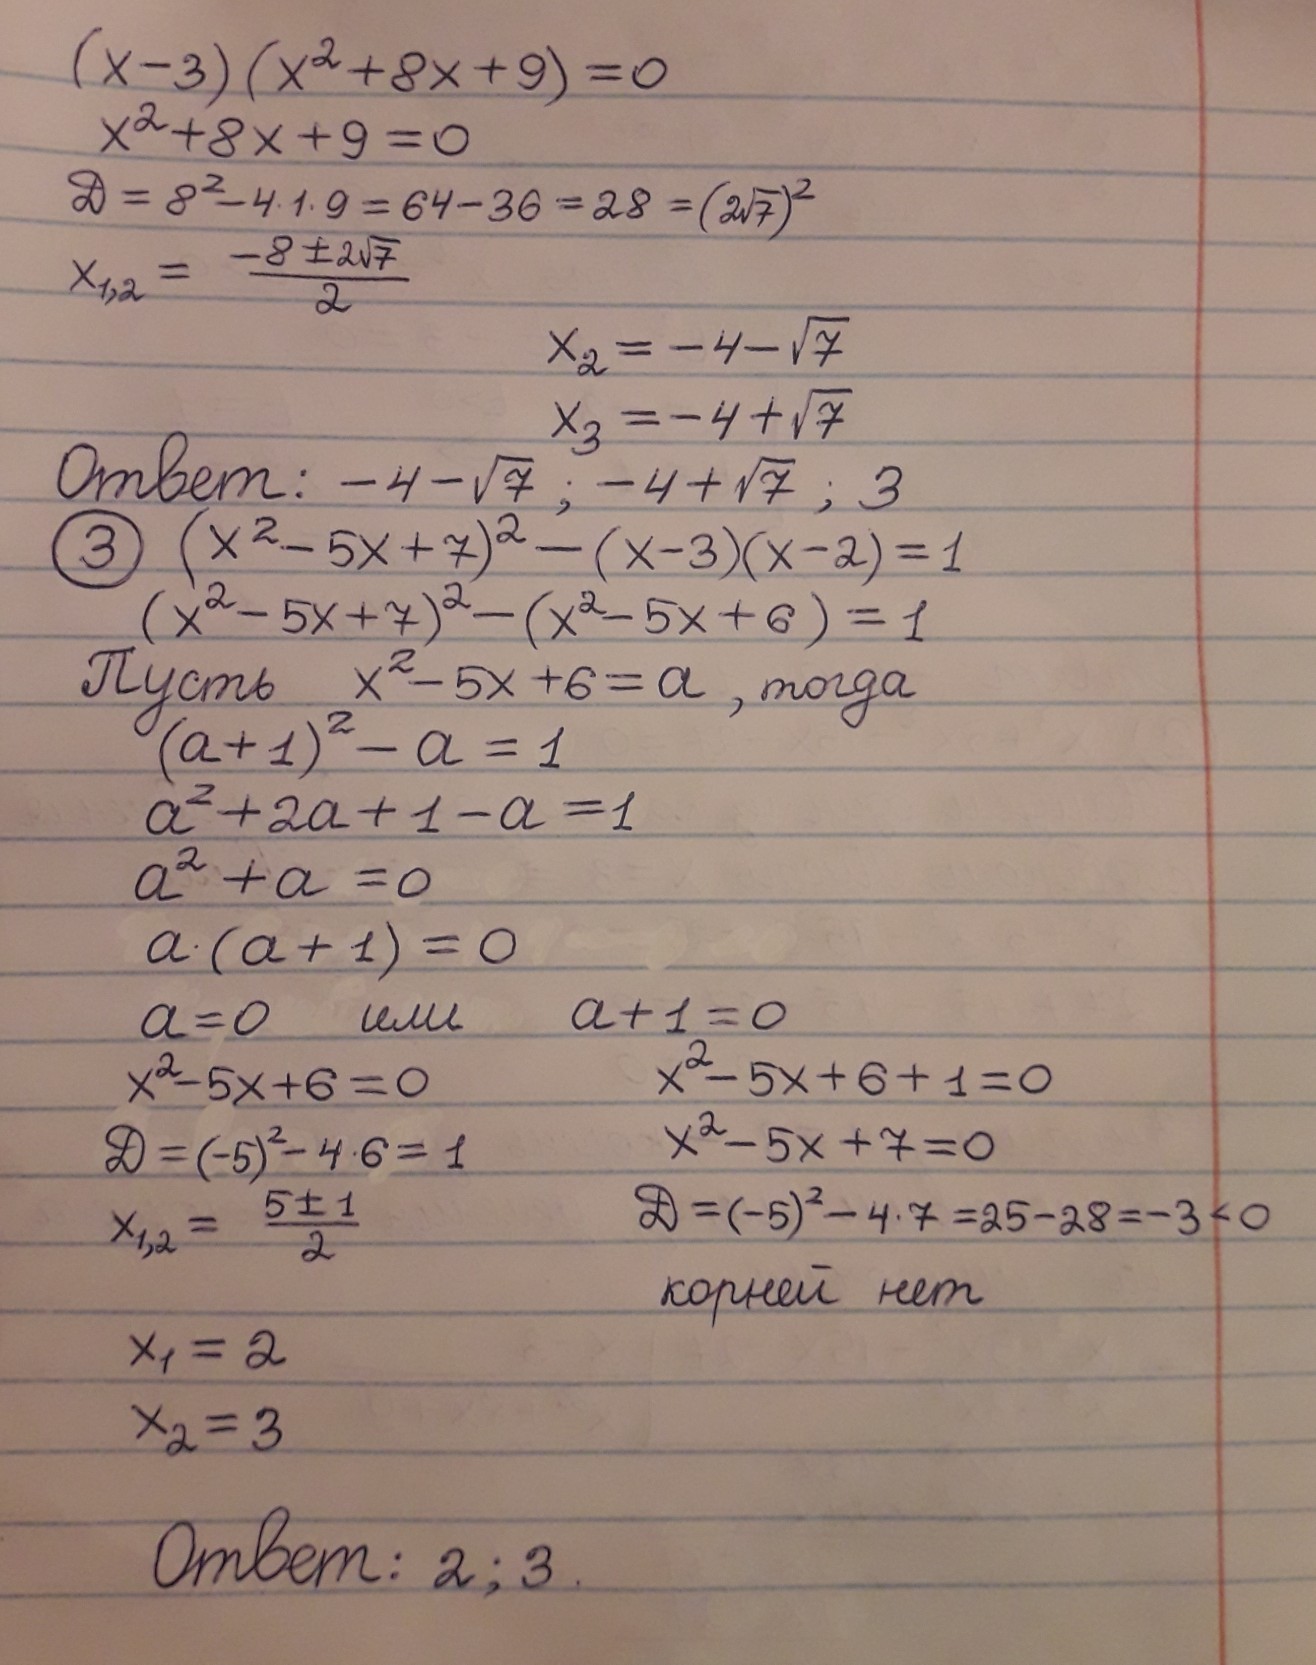 (x-3)(x²+8x+9)=0
x²+8x+9=0
D=8²-4·1·9=64-36=28=(2√7)²
x₁,₂= (-8±2√7)/2
x₂=-4-√7
x₃=-4+√7
Ответ: -4-√7; -4+√7; 3
③ (x²-5x+7)²-(x-3)(x-2)=1
(x²-5x+7)²-(x²-5x+6)=1
Пусть x²-5x+6=a, тогда
(a+1)²-a=1
a²+2a+1-a=1
a²+a=0
a·(a+1)=0
a=0 или a+1=0
x²-5x+6=0 x²-5x+6+1=0
D=(-5)²-4·6=1 x²-5x+7=0
x₁,₂= (5±1)/2 D=(-5)²-4·7=25-28=-3<0
корней нет
x₁=2
x₂=3
Ответ: 2; 3.